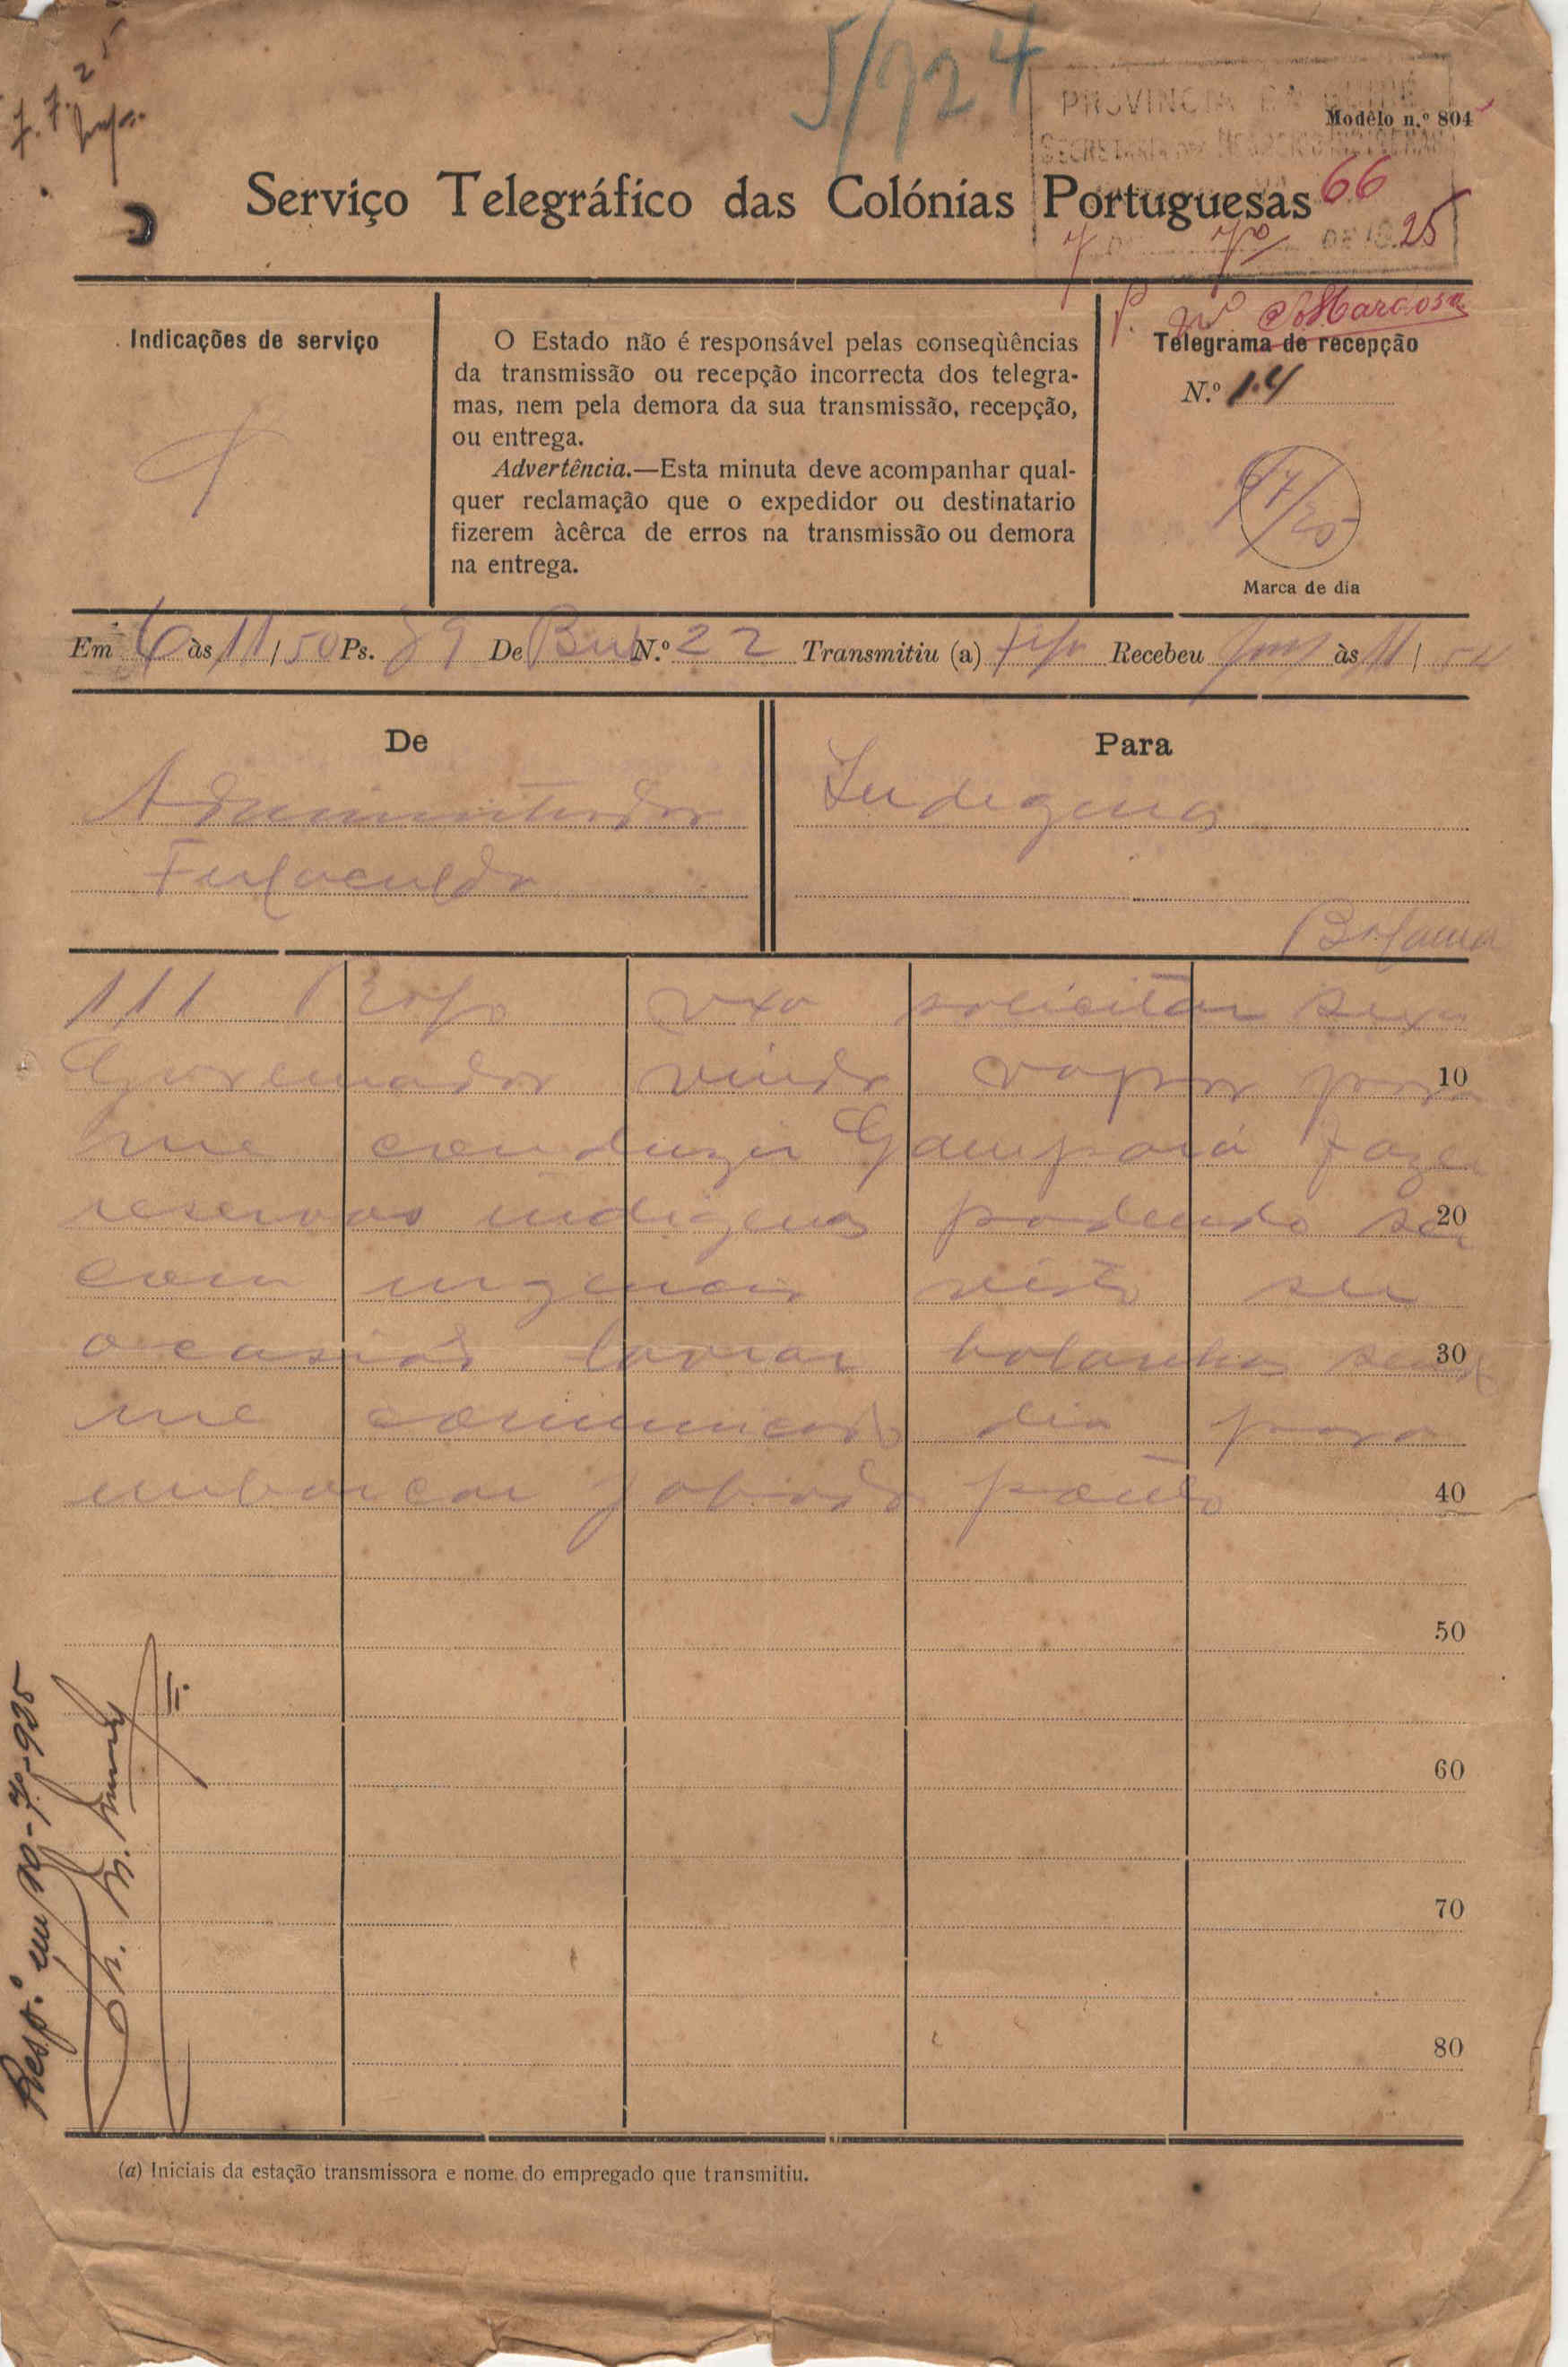 5/724
PROVINCIA DA GUINÉ
Modêlo n.º 804
SECRETARIA DOS NEGOCIOS INDIGENAS
Serviço Telegráfico das Colónias Portuguesas
66
7 DE 7º DE 1925
Indicações de serviço
O Estado não é responsável pelas conseqùências
da transmissão ou recepção incorrecta dos telegra-
mas, nem pela demora da sua transmissão, recepção,
ou entrega.
Advertência.—Esta minuta deve acompanhar qual-
quer reclamação que o expedidor ou destinatario
fizerem àcêrca de erros na transmissão ou demora
na entrega.
Telegrama de recepção
N.º 14
6/7/25
Marca de dia
Em 6 às 11/50 Ps. 39 De Bub N.º 22 Transmitiu (a) Recebeu às 11/54
De
Administrador
Fulacunda
Para
Indigenas
Bolama
111 Rogo vxa solicitar sexa
Governador vinda vapor para 10
me conduzir Gampará fazer
reservas indigenas podendo ser 20
com urgencia visto ser
ocasião lavrar bolanhas sendo 30
me comunicado dia para
embarcar 40
50
60
70
80
Resp.º em 10-7º-925
(a) Iniciais da estação transmissora e nome do empregado que transmitiu.